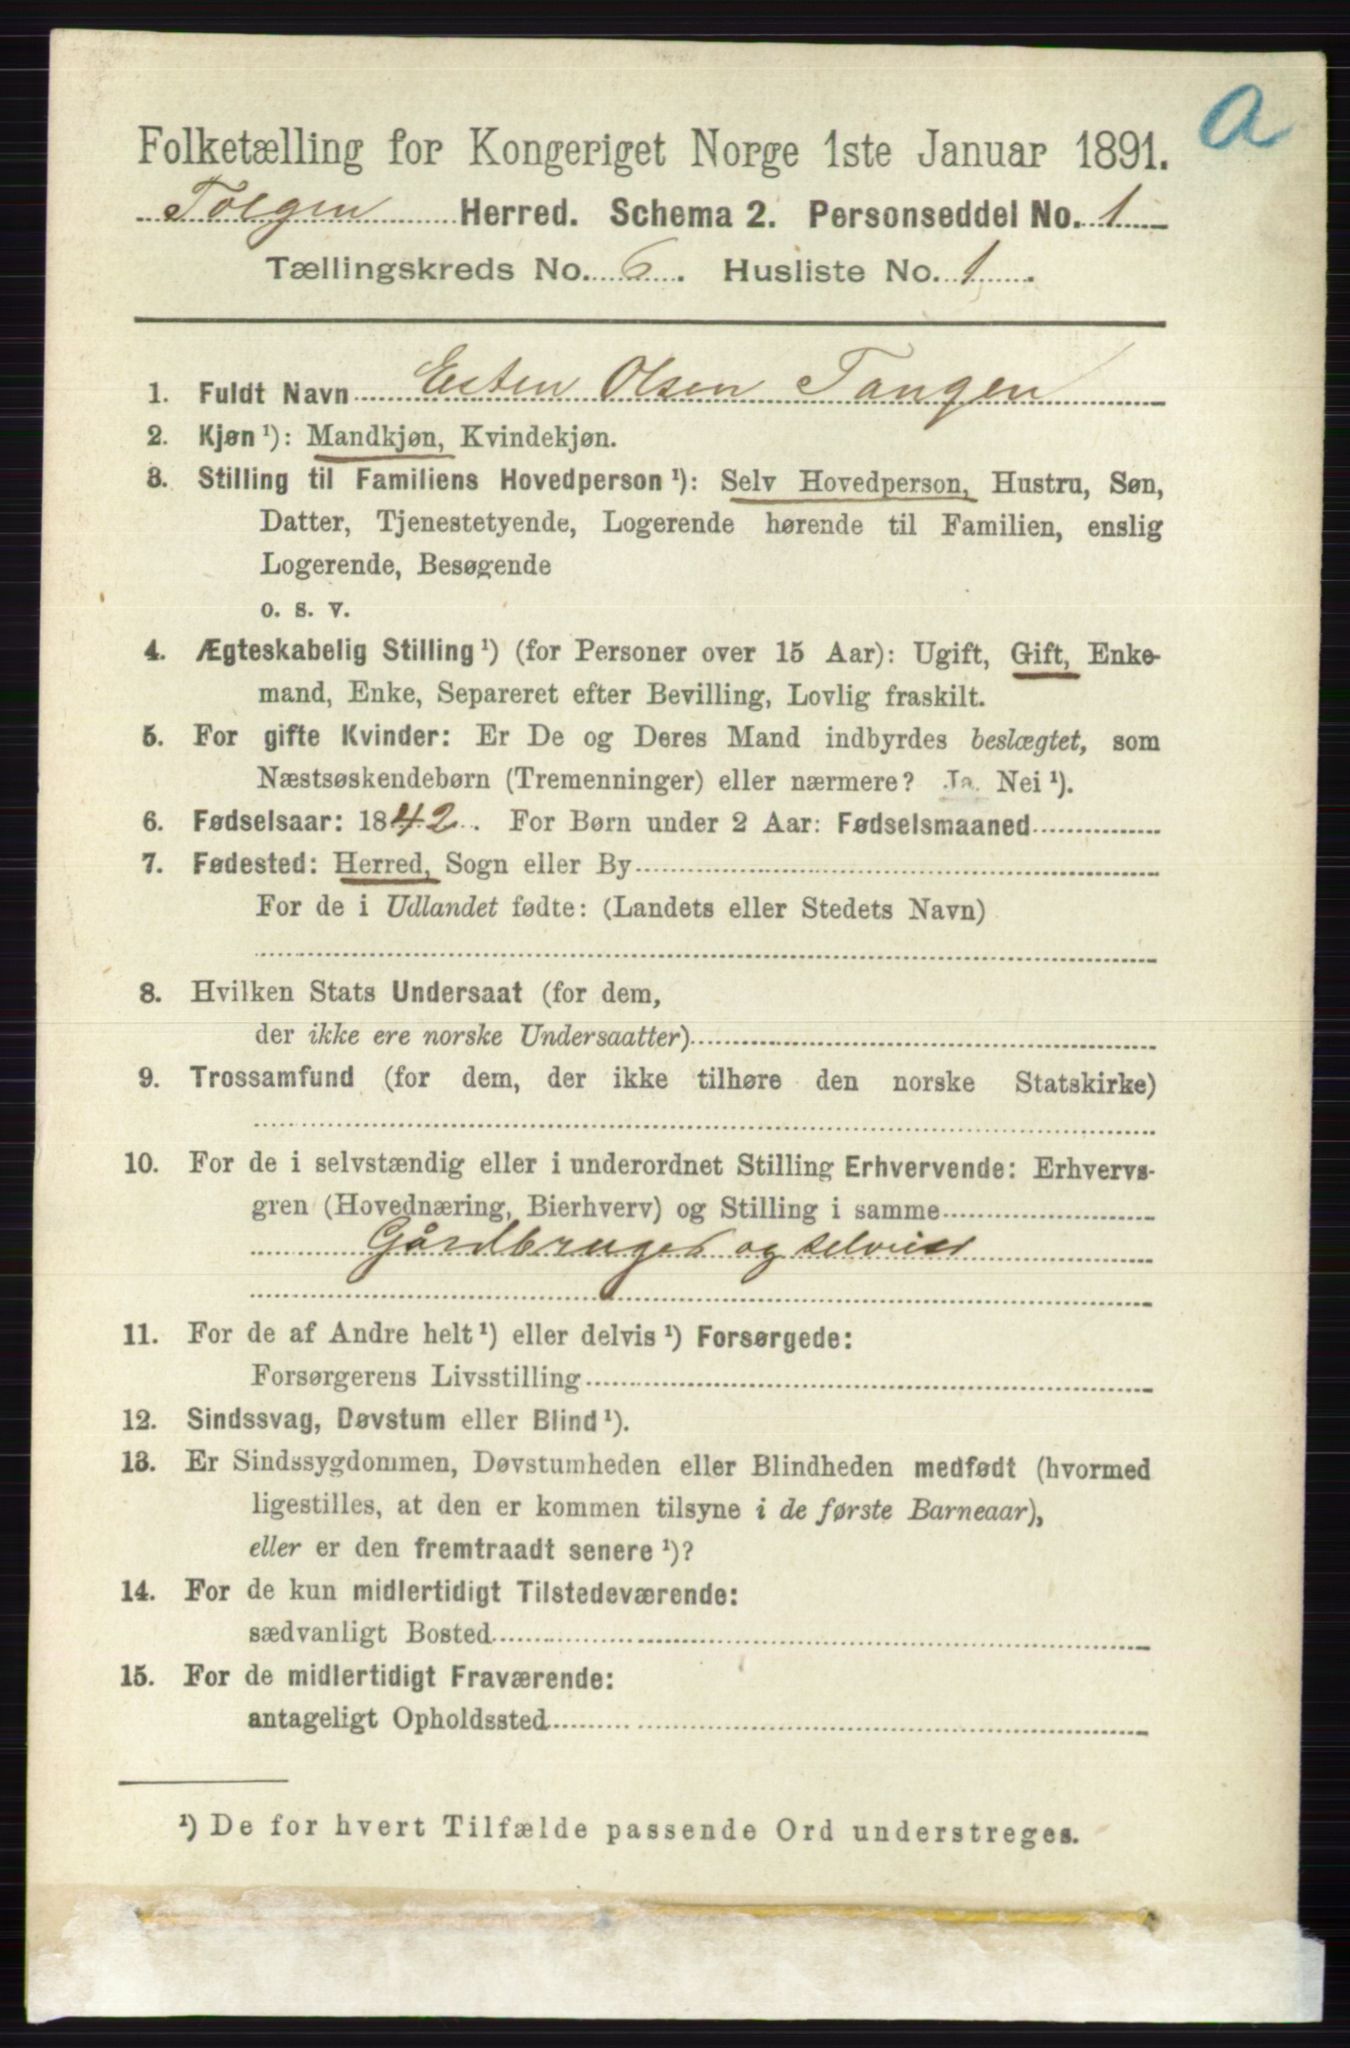 a
Folketælling for Kongeriget Norge 1ste Januar 1891.
Tolgen Herred. Schema 2. Personseddel No. 1
Tællingskreds No. 6. Husliste No. 1.
1. Fuldt Navn Esten Olsen Tangen
2. Kjøn¹): Mandkjøn, Kvindekjøn.
3. Stilling til Familiens Hovedperson¹): Selv Hovedperson, Hustru, Søn,
Datter, Tjenestetyende, Logerende hørende til Familien, enslig
Logerende, Besøgende
o. s. v.
4. Ægteskabelig Stilling¹) (for Personer over 15 Aar): Ugift, Gift, Enke-
mand, Enke, Separeret efter Bevilling, Lovlig fraskilt.
5. For gifte Kvinder: Er De og Deres Mand indbyrdes beslægtet, som
Næstsøskendebørn (Tremenninger) eller nærmere? Ja. Nei¹).
6. Fødselsaar: 1842. For Børn under 2 Aar: Fødselsmaaned
7. Fødested: Herred, Sogn eller By
For de i Udlandet fødte: (Landets eller Stedets Navn)
8. Hvilken Stats Undersaat (for dem,
der ikke ere norske Undersaatter)
9. Trossamfund (for dem, der ikke tilhøre den norske Statskirke)
10. For de i selvstændig eller i underordnet Stilling Erhvervende: Erhvervs-
gren (Hovednæring, Bierhverv) og Stilling i samme
Gårdbruger og selveier
11. For de af Andre helt¹) eller delvis¹) Forsørgede:
Forsørgerens Livsstilling
12. Sindssvag, Døvstum eller Blind¹).
13. Er Sindssygdommen, Døvstumheden eller Blindheden medfødt (hvormed
ligestilles, at den er kommen tilsyne i de første Barneaar),
eller er den fremtraadt senere¹)?
14. For de kun midlertidigt Tilstedeværende:
sædvanligt Bosted
15. For de midlertidigt Fraværende:
antageligt Opholdssted
¹) De for hvert Tilfælde passende Ord understreges.